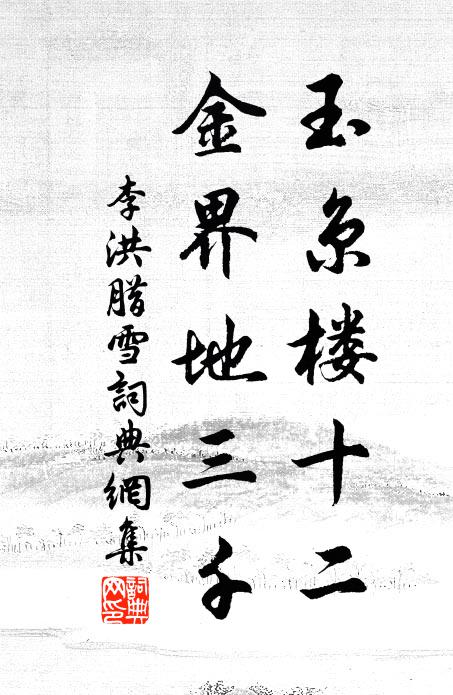 玉京楼十二
金界地三千
李洪腊雪詞典網集
詞典網印